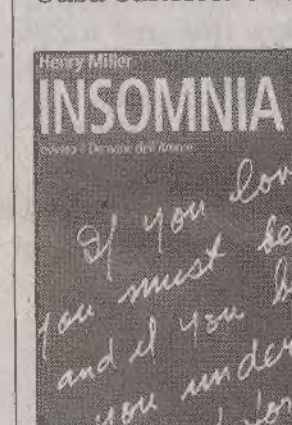 Henry Miller
INSOMNIA
If you lov
you must be
and if you b
you under